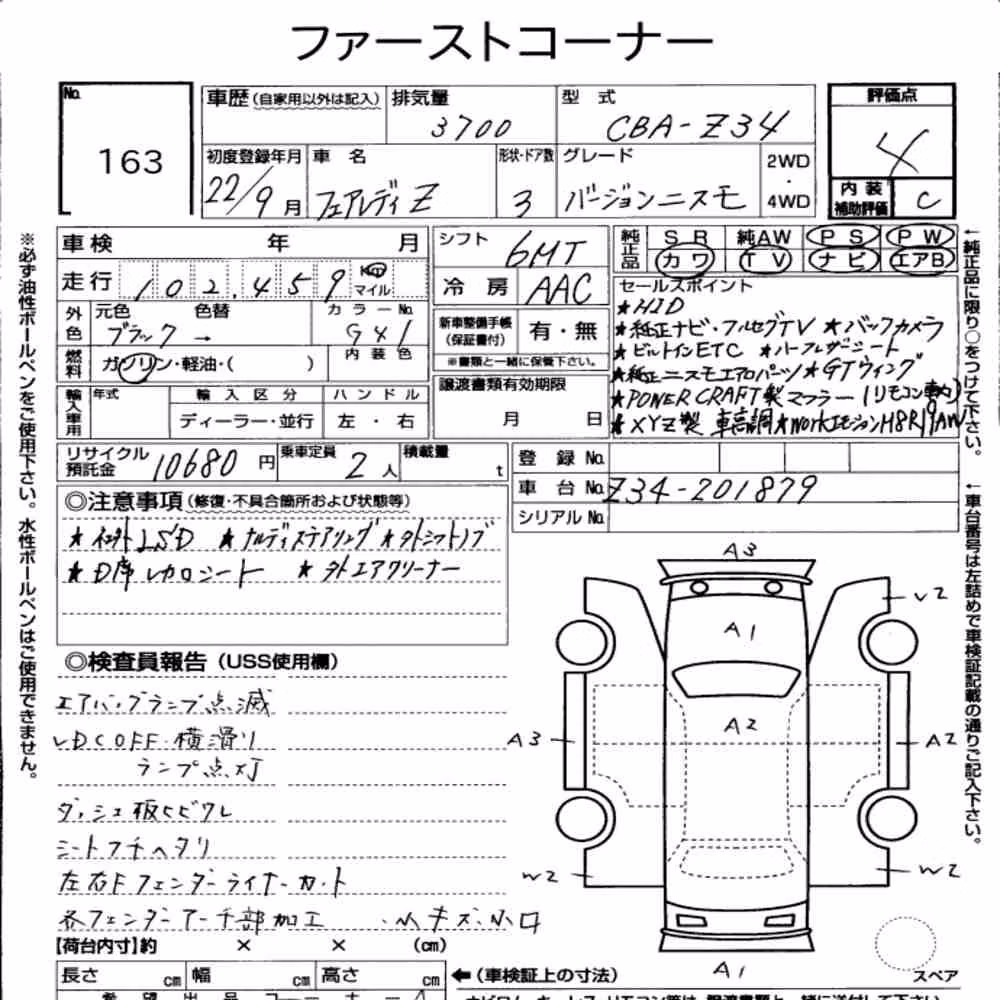 ファーストコーナー
No.
163
車歴(自家用以外は記入)
排気量
3700
型 式
CBA-Z34
評価点
4
内装補助評価
C
初度登録年月
22/9月
車 名
フェアレディZ
形状・ドア数
3
グレード
バージョンニスモ
2WD
・
4WD
車検 年 月
走行 102,459 Km マイル
外色
元色 色替 カラーNo.
ブラック → G41
燃料
ガソリン・軽油・( )
内 装 色
輸入車用
年式
輸 入 区 分
ディーラー・並行
ハ ン ド ル
左 ・右
シフト
6MT
冷 房
AAC
新車整備手帳(保証書付)
有・無
※書類と一緒に保管下さい。
譲渡書類有効期限
月 日
純正品
SR 純AW PS PW
カワ TV ナビ エアB
セールスポイント
★HID
★純正ナビ・フルセグTV ★バックカメラ
★ビルトインETC ★ハーフレザーシート
★純正ニスモエアロパーツ ★GTウィング
★POWER CRAFT製マフラー(リモコン車内)
★XYZ製 車高調 ★WORKエモーション 19AW
リサイクル預託金
10680円
乗車定員
2人
積載量
t
登 録 No.
車 台 No.
Z34-201879
シリアルNo.
◎注意事項(修復・不具合箇所および状態等)
LSD ★ナルディステアリング ★シフトノブ
★D席レカロシート ★外エアクリーナー
◎検査員報告(USS使用欄)
エアバッグランプ点滅
VDC OFF・横滑り
ランプ点灯
ダッシュ板ヒビワレ
シートフチヘタリ
左右Fフェンダーライナーカット
各フェンダーアーチ部加工 ・小キズ小凹
A3
A1
A2
V2
A3
A2
W2
W2
A1
スペア
【荷台内寸】約 × × (cm)
長さ cm 幅 cm 高さ cm
←(車検証上の寸法)
※必ず油性ボールペンをご使用下さい。水性ボールペンはご使用できません。
←純正品に限り○をつけて下さい。
←車台番号は左詰めで車検証記載の通りご記入下さい。